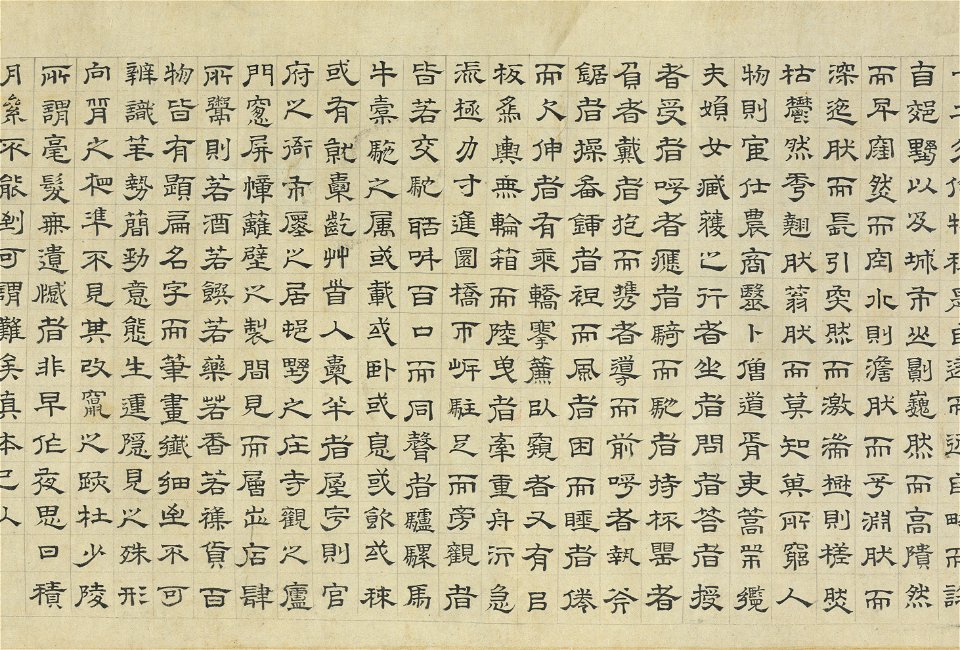 自郊野以及城市山則巍然而高隤然
而卑窪然而空水則澹然而平淵然而
深迤然而長引突然而激湍樹則槎然
枯鬱然秀翹然蓊然而莫知其所窮人
物則宦仕農商醫卜僧道胥吏篙帀纜
夫婦女臧獲之行者坐者問者答者授
者受者呼者應者騎而馳者持杯罌者
負者戴者抱而携者導而前呼者執斧
鋸者操畚鍤者袒而風者困而睡者倦
而欠伸者有乘轎搴簾以窺者又有以
板為輿無輪箱而陸曳者牽重舟沂急
流極力寸進圜橋帀岸駐足而旁觀者
皆若交馳聒叫百口而同聲者驢騾馬
牛橐駝之属或載或卧或息或飲或秣
或有就橐齕艸首入橐半者屋宇則官
府之衙市廛之居邨野之庄寺觀之廬
門窗屏幛籬壁之製間見而層出店肆
所鬻則若酒若饌若藥若香若襍貨百
物皆有題扁名字而筆畫纖細不可
辨識筆勢簡勁意態生運隱見之殊形
向背之相準不見其改竄之跡杜少陵
所謂毫髮無遺憾者非早作夜思日積
月絫不能到可謂難矣真本已入